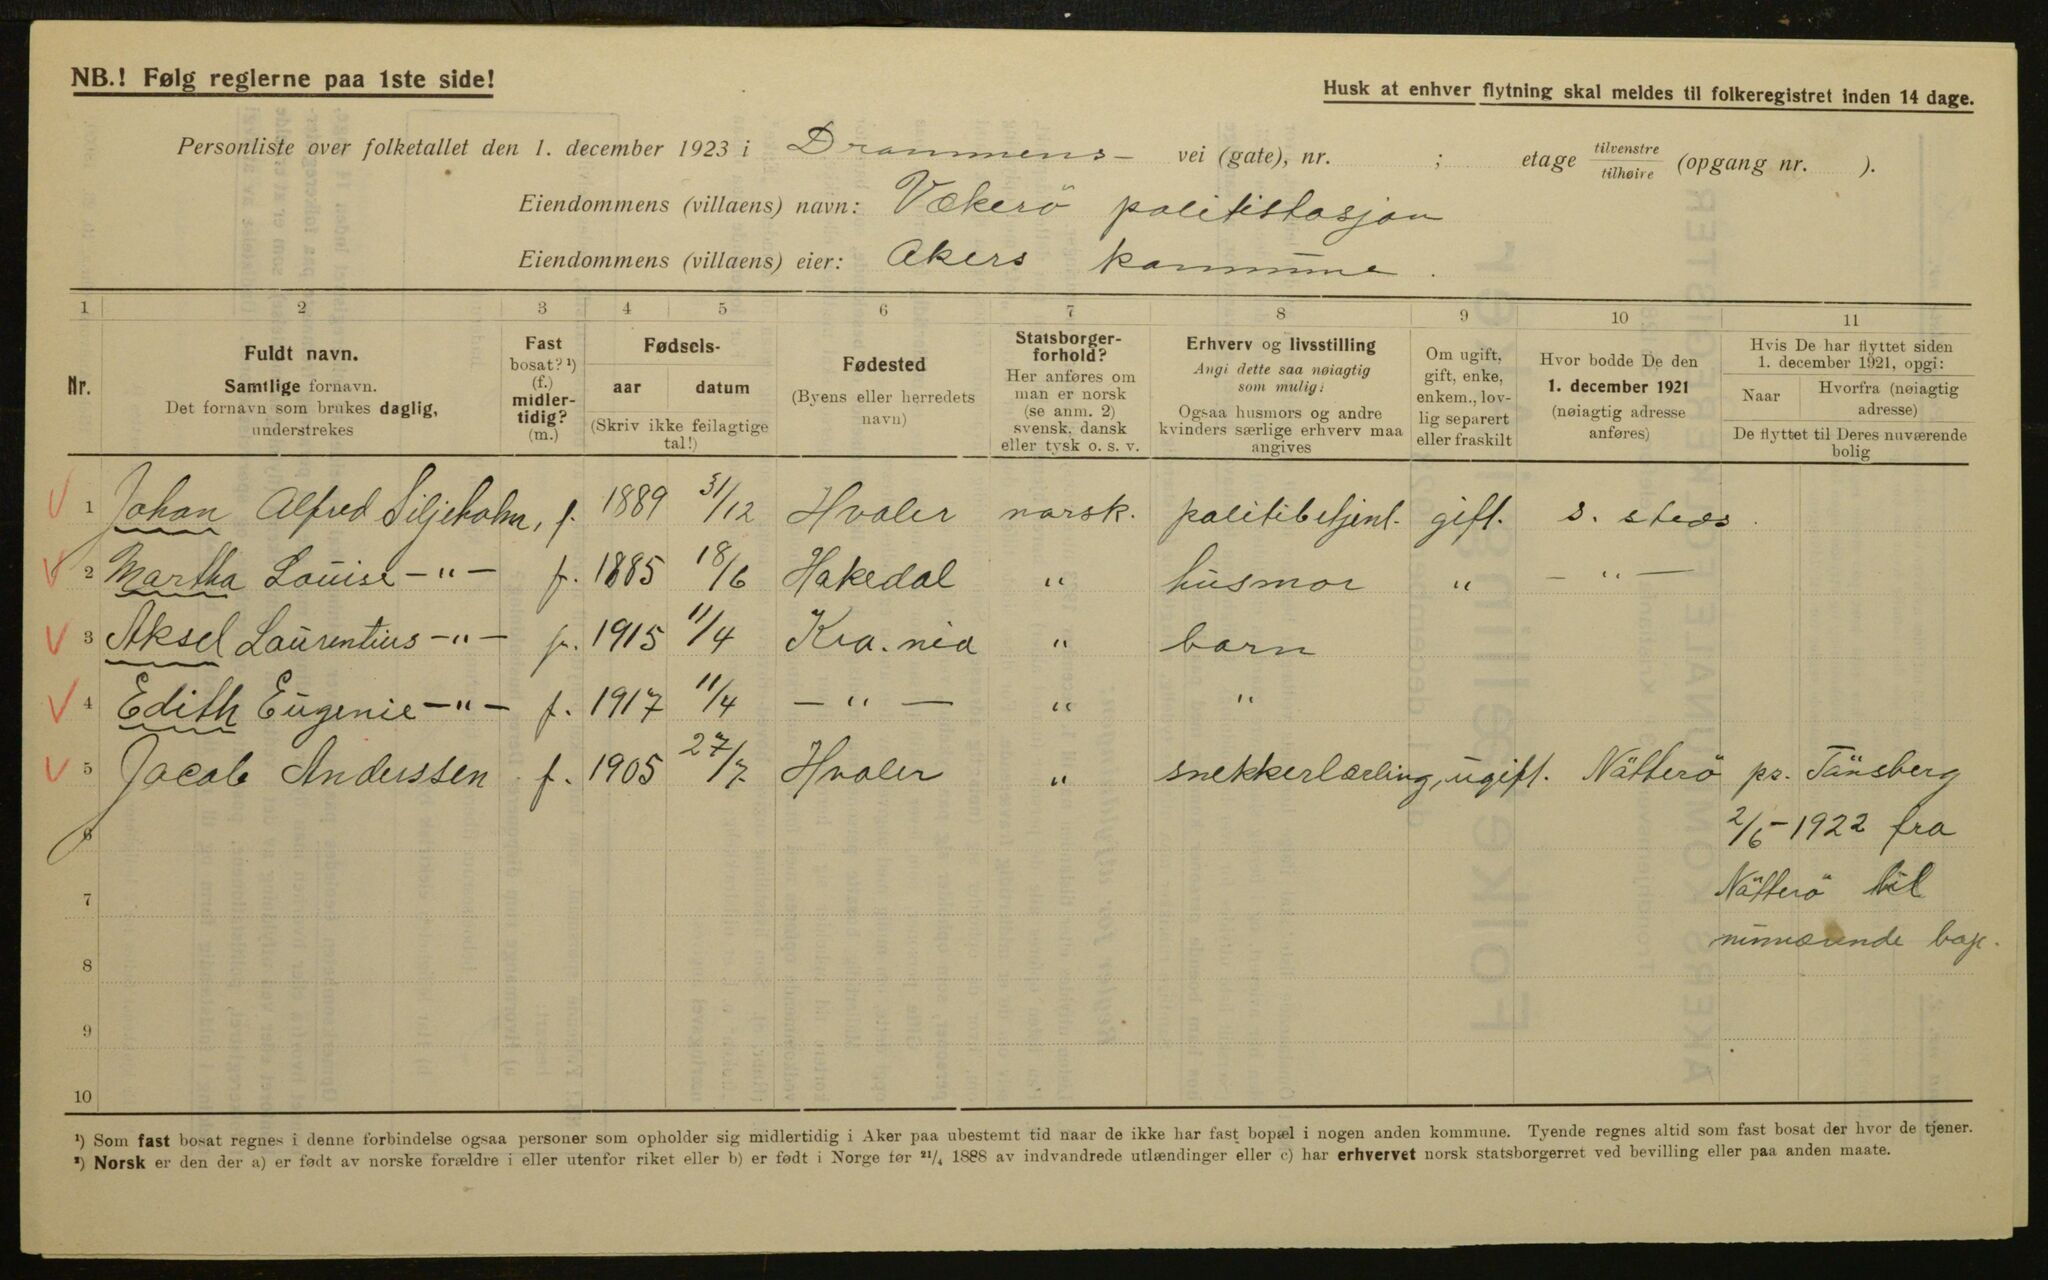 NB.! Følg reglerne paa 1ste side!
Husk at enhver flytning skal meldes til folkeregistret inden 14 dage.
Personliste over folketallet den 1. december 1923 i Drammens- vei (gate), nr. ; etage tilvenstre/tilhøire (opgang nr. ).
Eiendommens (villaens) navn: Vækerö politistasjon
Eiendommens (villaens) eier: Akers kommune.
1 2 3 4 5 6 7 8 9 10 11
Nr.
Fuldt navn.
Samtlige fornavn.
Det fornavn som brukes daglig,
understrekes
Fast
bosat? ¹)
(f.)
midler-
tidig?
(m.)
Fødsels-
aar datum
(Skriv ikke feilagtige
tal!)
Fødested
(Byens eller herredets
navn)
Statsborger-
forhold?
Her anføres om
man er norsk
(se anm. 2)
svensk, dansk
eller tysk o. s. v.
Erhverv og livsstilling
Angi dette saa nøiagtig
som mulig;
Ogsaa husmors og andre
kvinders særlige erhverv maa
angives
Om ugift,
gift, enke,
enkem., lov-
lig separert
eller fraskilt
Hvor bodde De den
1. december 1921
(nøiagtig adresse
anføres)
Hvis De har flyttet siden
1. december 1921, opgi:
Naar Hvorfra (nøiagtig
adresse)
De flyttet til Deres nuværende
bolig
1 Johan Alfred Siljeholm, f. 1889 31/12 Hvaler norsk. politibetjent. gift. s. steds.
2 Martha Louise -"- f. 1885 18/6 Hakedal " husmor " -"-
3 Aksel Laurentius -"- f. 1915 11/4 Kra.nia " barn
4 Edith Eugenie -"- f. 1917 11/4 -"- " "
5 Jacob Anderssen f. 1905 27/7 Hvaler " snekkerlærling, ugift. Nötterö pr. Tönsberg
6 2/6-1922 fra
7 Nötterö til
nuværende bop.
8
9
10
¹) Som fast bosat regnes i denne forbindelse ogsaa personer som opholder sig midlertidig i Aker paa ubestemt tid naar de ikke har fast bopæl i nogen anden kommune. Tyende regnes altid som fast bosat der hvor de tjener.
²) Norsk er den der a) er født av norske forældre i eller utenfor riket eller b) er født i Norge før 21/4 1888 av indvandrede utlændinger eller c) har erhvervet norsk statsborgerret ved bevilling eller paa anden maate.